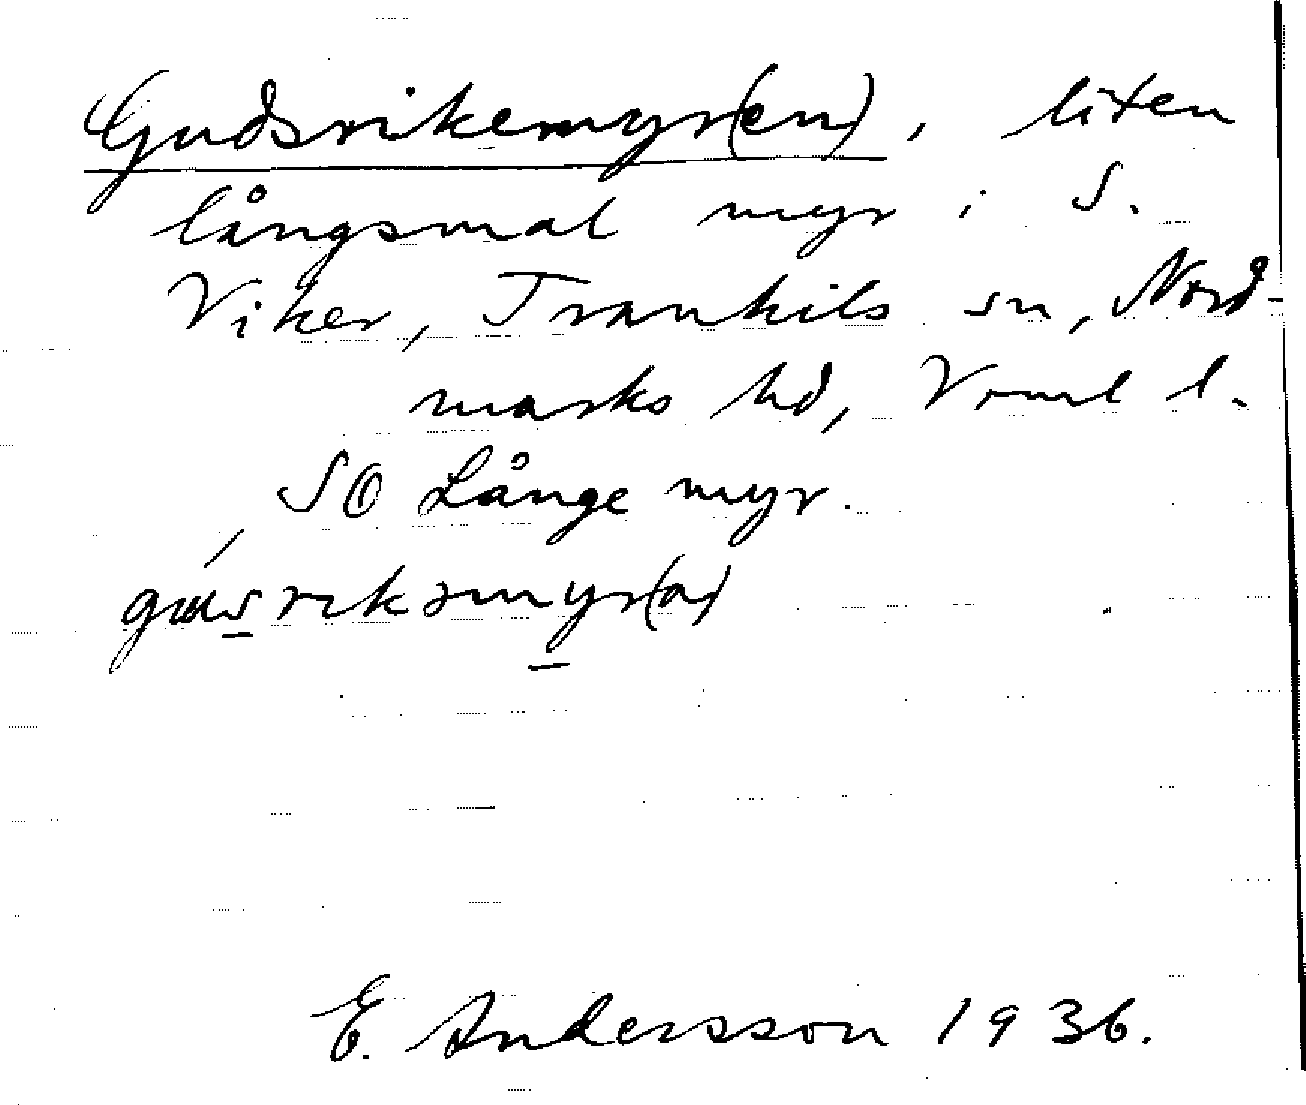 Gudsrikemyr(en), liten
långsmal myr i S.
Viker, Trankils sn, Nord-
marks hd, Vrml l.
SO Långe myr.
gúdsrikəmyr(a)
E. Andersson 1936.